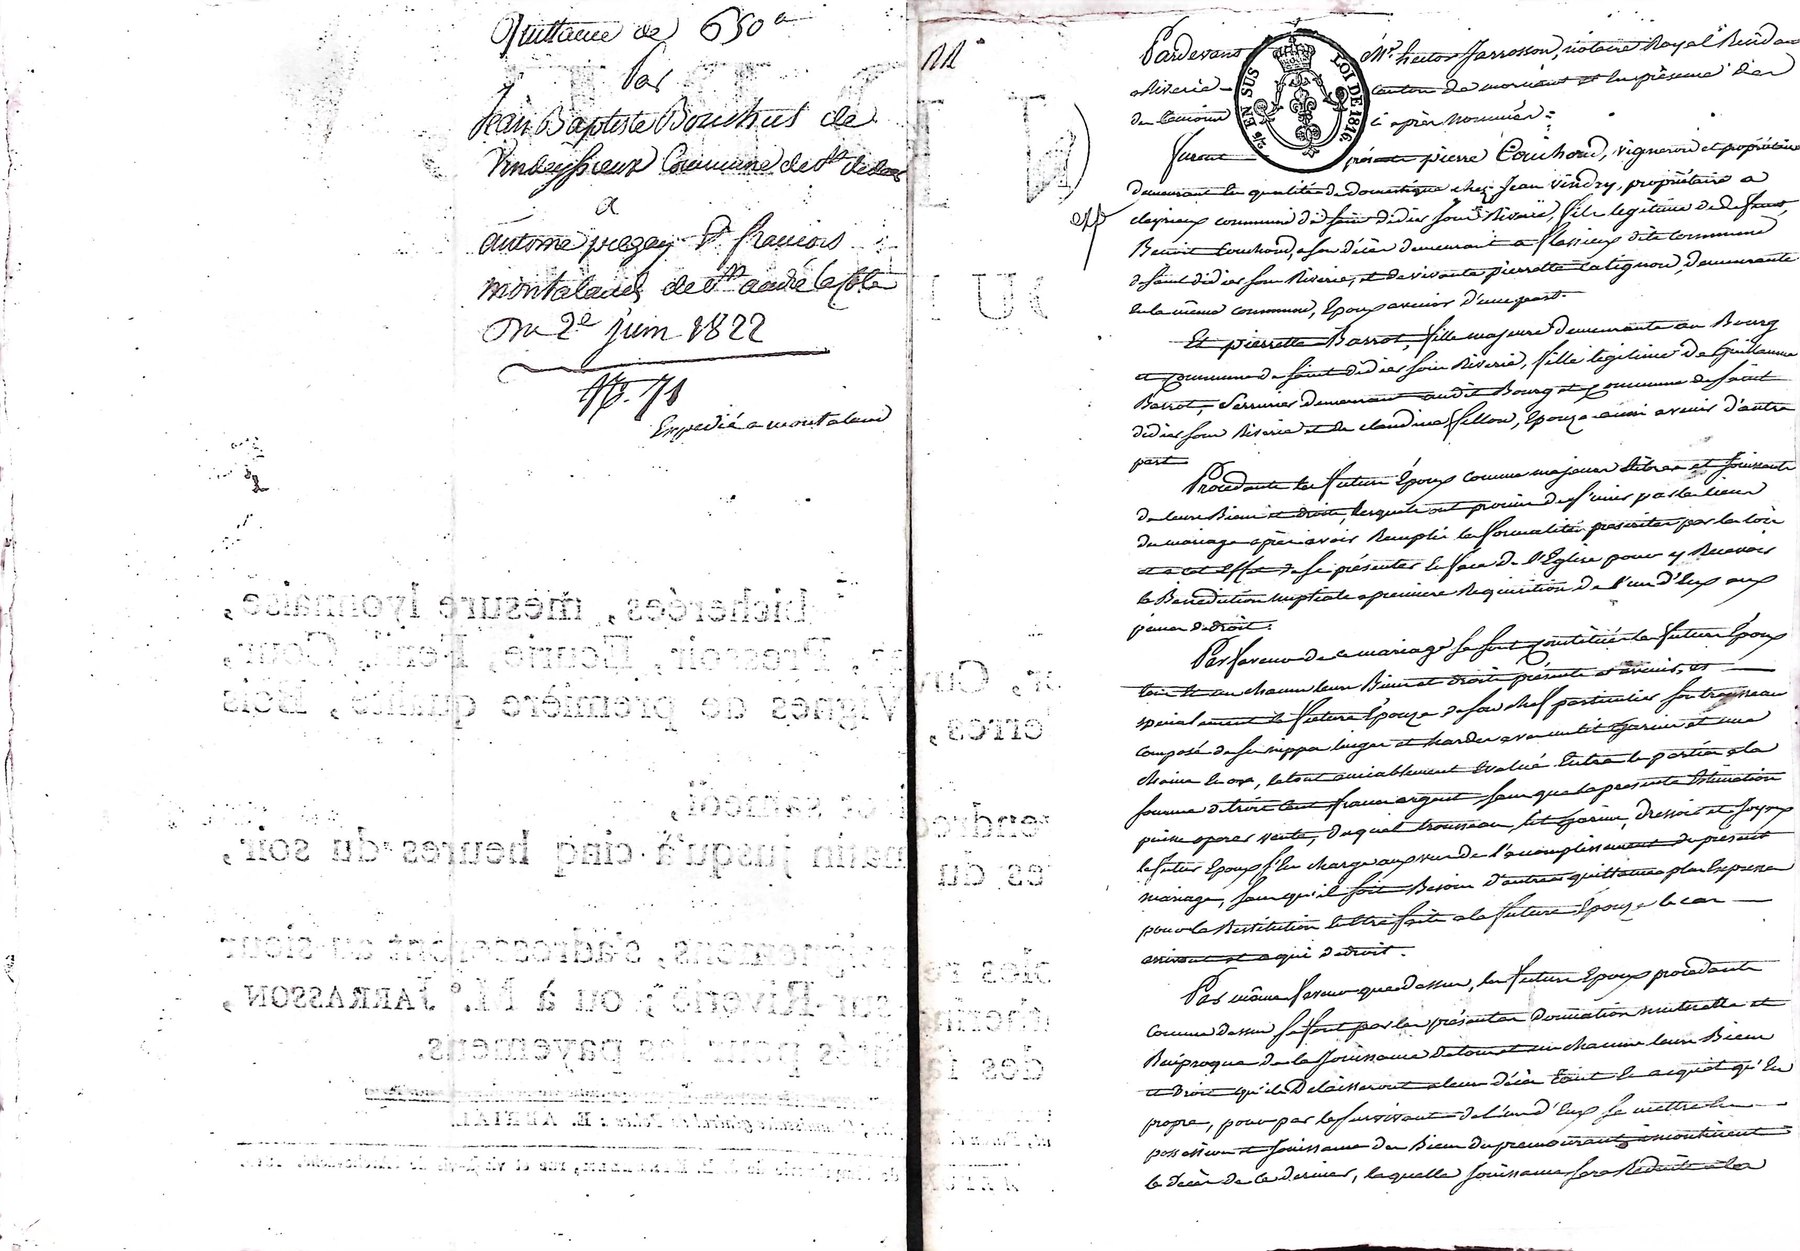 Quittance de 650
Par
Jean Baptiste Bouchut de
Commune de St
a
antoine pregay & françois
montaland de St andré la Côte
Du 2e juin 1822
No. 71
Expedié a montaland
bicherées, mesure lyonnaise,
Pressoir, Ecurie, Fenil, Cour,
Vignes de première qualité, Bois
et samedi,
matin jusqu'à cinq heures du soir,
s'adresser au sieur
sur-Riverie; ou à Me. JARRASSON,
pour les payemens.
22
EN SUS LOI DE 1816.
Pardevant Me. hector Jarrosson, notaire Royal Résidant
a Riverie canton de mornant et en présence des
témoins ci après nommés :
furent présents pierre Couchoud, vigneron et propriétaire
demeurant en qualité de domestique chez Jean Vindry, propriétaire a
commune de saint didier sous Riverie, fils légitime de defunt
Benoit Couchoud, a son décès demeurant a flassieux dite commune
de saint didier sous Riverie, et de vivante pierrette Catignon, demeurante
en la même commune, Epoux avenir d'une part.
Et pierrette Barrot, fille majeure demeurante au Bourg
et commune de saint didier sous Riverie, fille légitime de Guillaume
Barrot, Serrurier demeurant audit Bourg et commune de saint
didier sous Riverie et de claudine fillon, Epouze aussi avenir d'autre
part
Procedants les futurs Epoux comme majeurs libres et jouissants
de leurs Biens et droits, lesquels ont promis de s'unir par les liens
du mariage après avoir Remplis les formalités prescrites par les lois
et a cet effet de se présenter en face de l'Eglise pour y Recevoir
la Bénédiction nuptiale a première Requisition de l'un d'Eux aux
peines de droit.
Par faveur de ce mariage se sont constitués les futurs Epoux
tous et un chacun leurs Biens et droits présents et avenir, et
spécialement la future Epouze de son chef particulier son trousseau
composé de ses nippes linges et hardes avec un lit Garni et une
chaine en or, le tout amiablement Evalué Entre les parties a la
somme de trois cent francs argent sans que la présente Estimation
puisse operer vente, duquel trousseau, lit Garni, dressoir et Joyaux
le futur Epoux s'en charge au moyen de l'accomplissement du présent
mariage, sans qu'il soit Besoin d'autre quittance plus Expresse
pour la Restitution en Etre faite a la future Epouze le cas
arrivant et a qui de droit.
Par même faveur que dessus, les futurs Epoux procedants
comme dessus se font par les présentes donnation mutuelle et
Réciproque de la Jouissance de tous et un chacun leurs Biens
et droits qu'ils Délaisseront a leur décès tant en acquet qu'En
propre, pour par le survivant de l'un d'Eux se mettre En
possession et jouissance des Biens du premourant incontinent
le décès de ce dernier, laquelle Jouissance sera Réduite a la